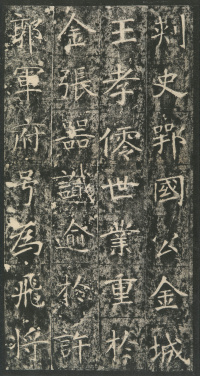 刺史鄂國公金城
王孝僊世業重於
金張器識逾於許
郭軍府号為飛將